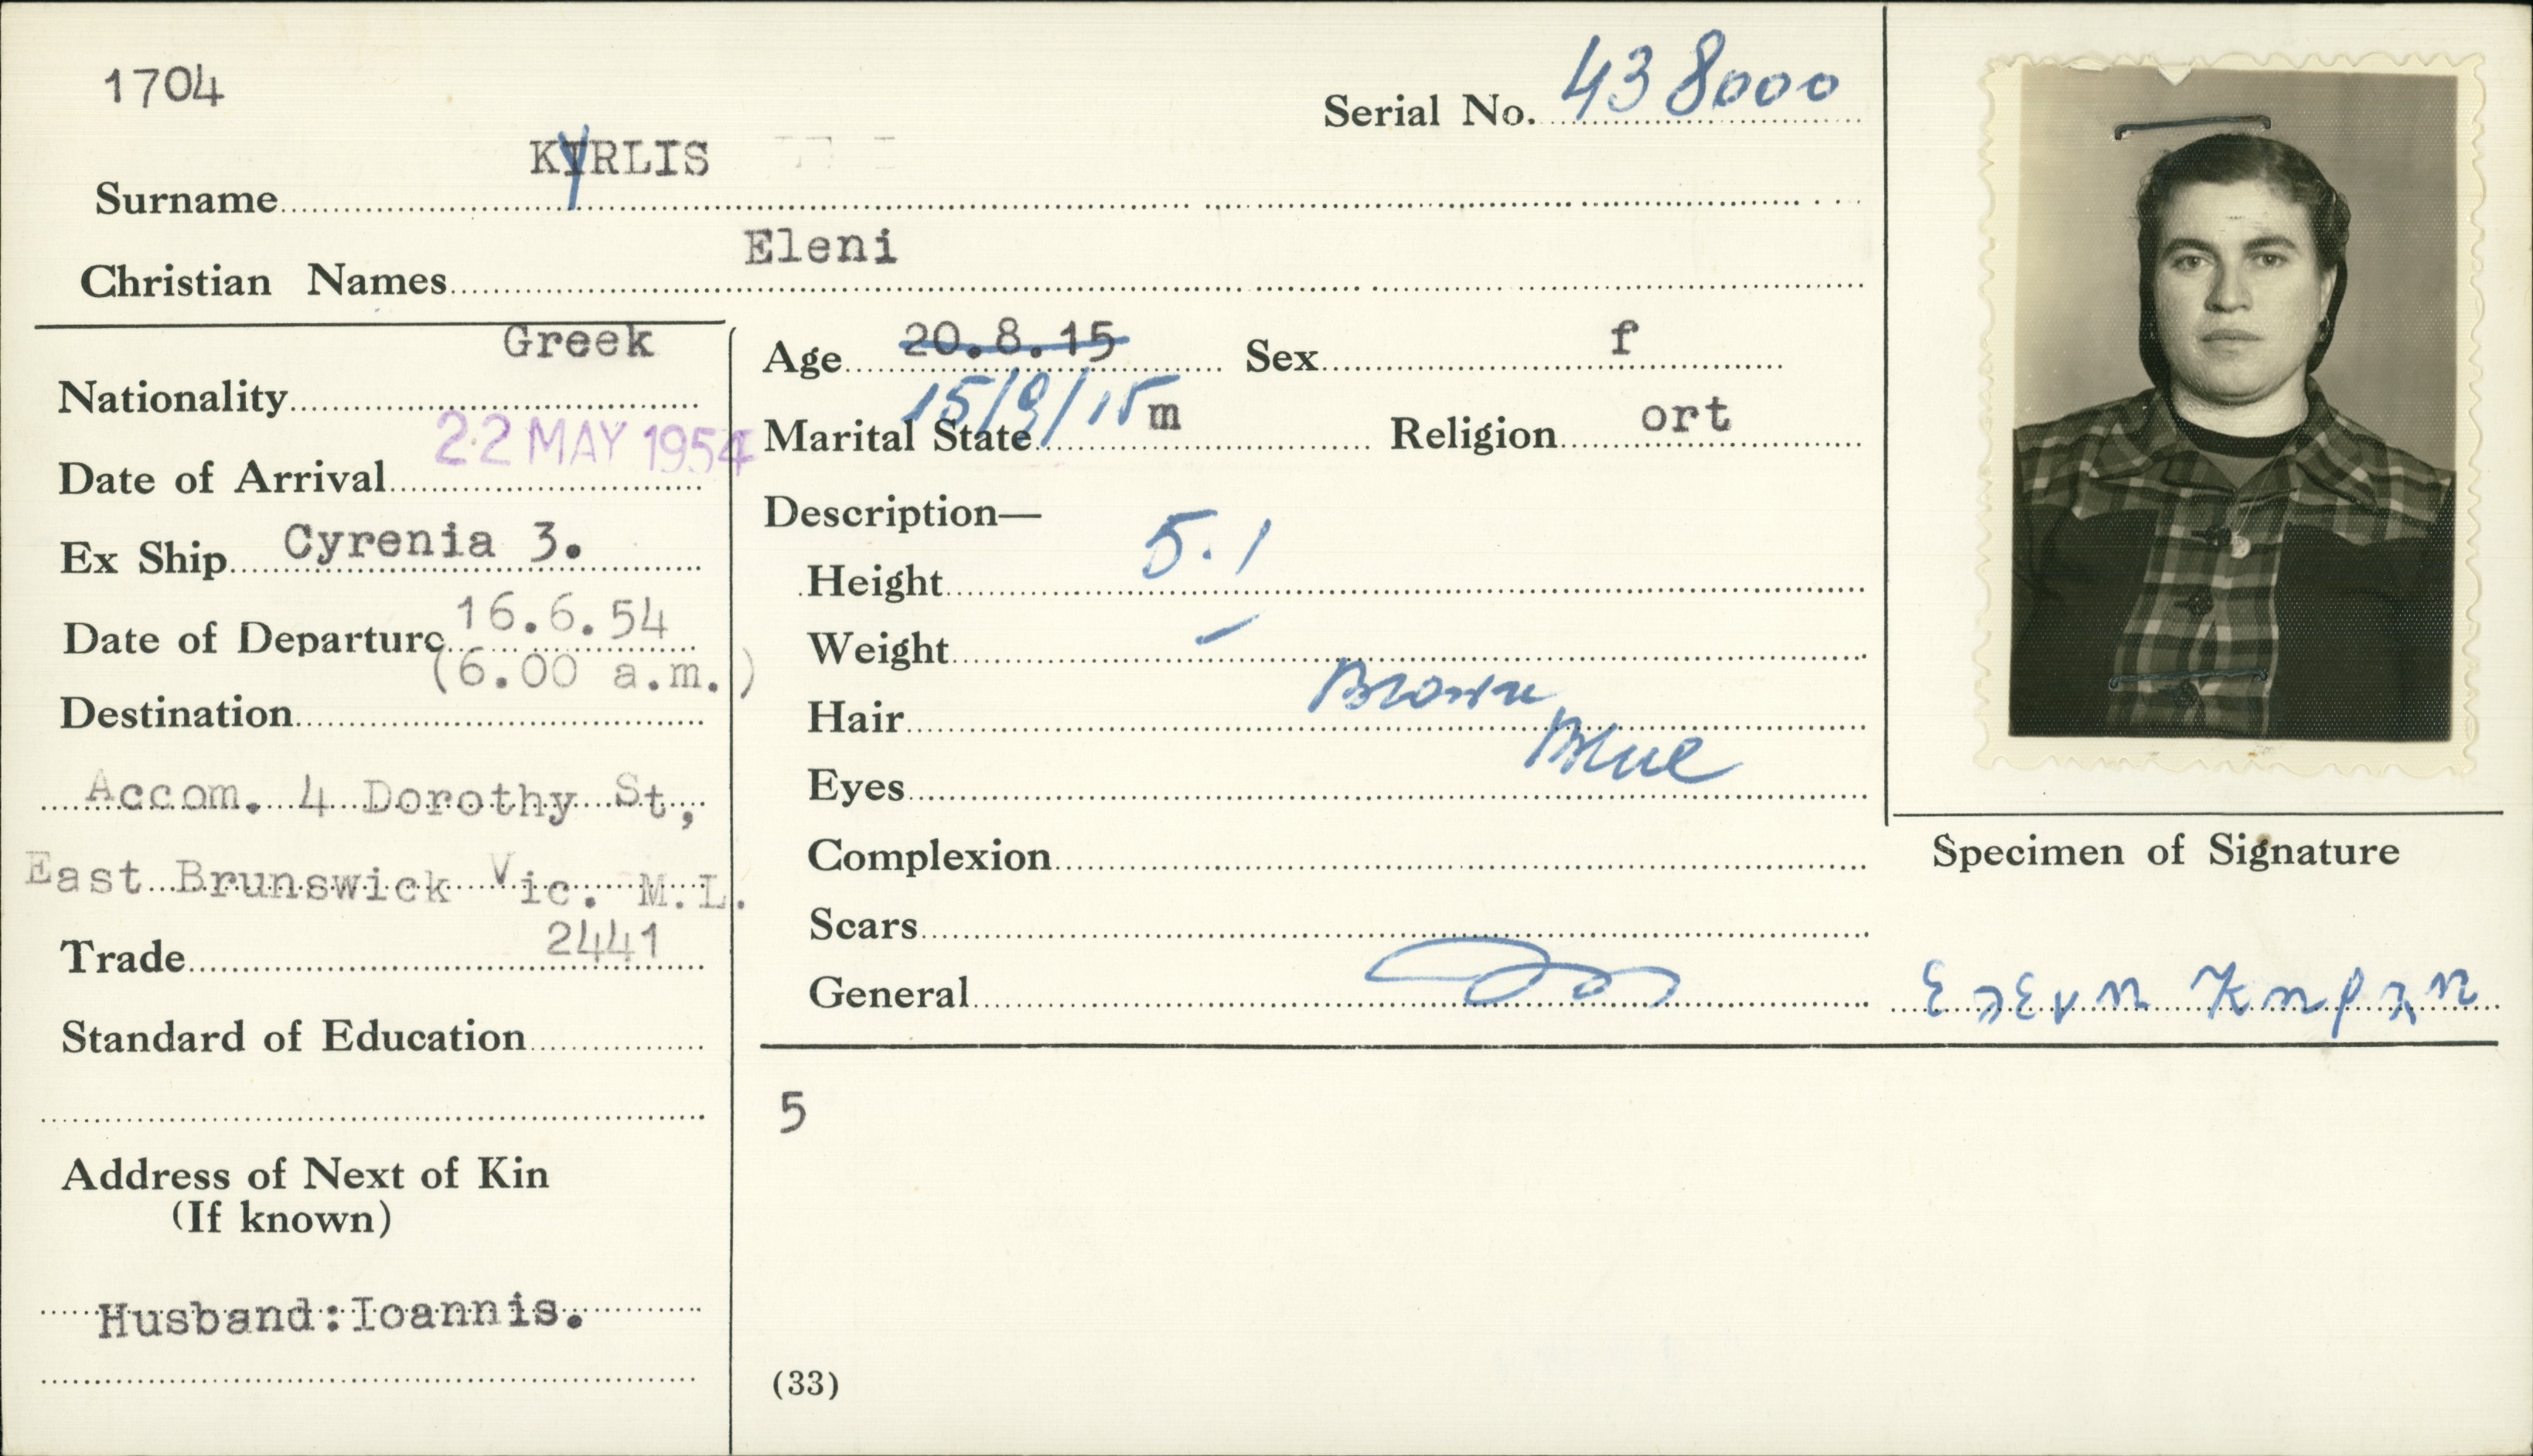 1704
Serial No. 438000
Surname KYRLIS
Christian Names Eleni
Nationality Greek
Date of Arrival 22 MAY 1954
Ex Ship Cyrenia 3.
Date of Departure 16.6.54
(6.00 a.m.)
Destination
Accom. 4 Dorothy St,
East Brunswick Vic. M.L.
Trade 2441
Standard of Education
Address of Next of Kin
(If known)
Husband:Ioannis.
Age 20.8.15 Sex f
15/9/15
Marital State m Religion ort
Description—
Height 5.1
Weight –
Hair Brown
Eyes Blue
Complexion
Scars
General
5
(33)
Specimen of Signature
Ελενη Κηρλη